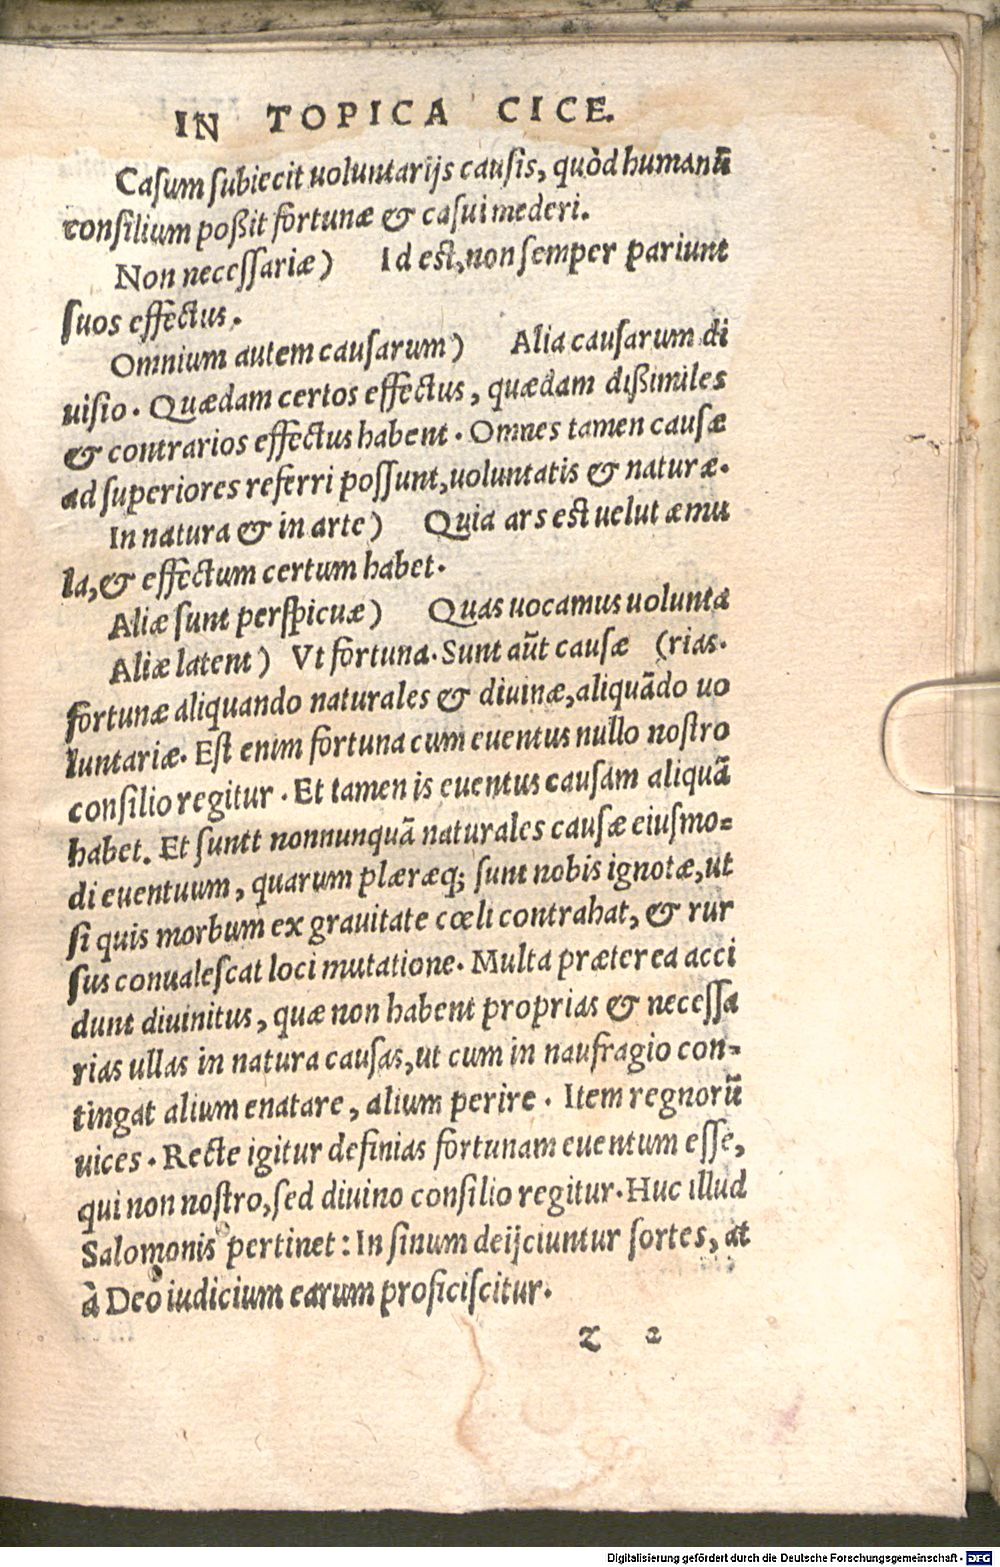 IN TOPICA CICE.
Casum subiecit uoluntarijs causis, quòd humanū
consilium poßit fortunæ & casui mederi.
Non necessariæ) Id est, non semper pariunt
suos effectus.
Omnium autem causarum) Alia causarum di
uisio. Quædam certos effectus, quædam dißimiles
& contrarios effectus habent. Omnes tamen causæ
ad superiores referri possunt, uoluntatis & naturæ.
In natura & in arte) Quia ars est uelut æmu
la, & effectum certum habet.
Aliæ sunt perspicuæ) Quas uocamus uolunta
Aliæ latent) Vt fortuna. Sunt aūt causæ (rias.
fortunæ aliquando naturales & diuinæ, aliquādo uo
luntariæ. Est enim fortuna cum euentus nullo nostro
consilio regitur. Et tamen is euentus causam aliquā
habet. Et suntt nonnunquā naturales causæ eiusmo=
di euentuum, quarum plæræq; sunt nobis ignotæ, ut
si quis morbum ex grauitate cœli contrahat, & rur
sus conualescat loci mutatione. Multa præterea acci
dunt diuinitus, quæ non habent proprias & necessa
rias ullas in natura causas, ut cum in naufragio con=
tingat alium enatare, alium perire. Item regnorū
uices. Recte igitur definias fortunam euentum esse,
qui non nostro, sed diuino consilio regitur. Huc illud
Salomonis pertinet: In sinum deijciuntur sortes, at
à Deo iudicium earum proficiscitur.
z 2
Digitalisierung gefördert durch die Deutsche Forschungsgemeinschaft - DFG